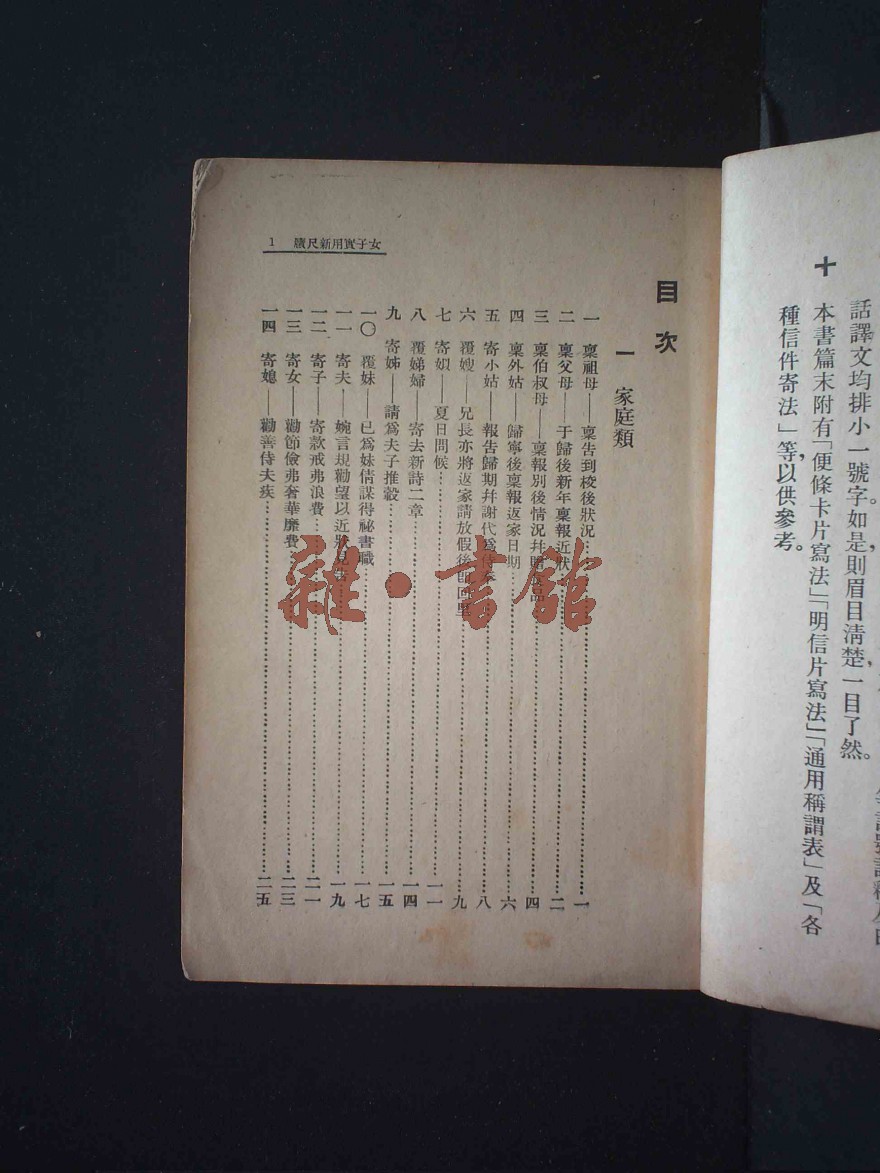 話譯文均排小一號字。如是，則眉目清楚，一目了然。
十 本書篇末附有「便條卡片寫法」「明信片寫法」「通用稱謂表」及「各
種信件寄法」等，以供參考。
女子實用新尺牘 1
目次
一 家庭類
一 稟祖母——稟告到校後狀況 一
二 稟父母——于歸後新年稟報近狀 二
三 稟伯叔母——稟報別後情況并贈食品 四
四 稟外姑——歸寧後稟報返家日期 六
五 寄小姑——報告歸期并謝代爲侍奉 八
六 覆嫂——兄長亦將返家請放假後即回里 九
七 寄姨——夏日問候 一一
八 覆娣婦——寄去新詩二章 一四
九 寄姊——請爲夫子推轂 一五
一〇 覆妹——已爲妹倩謀得祕書職 一七
一一 寄夫——婉言規勸望以近狀見告 一九
一二 寄子——寄款戒弗浪費 二一
一三 寄女——勸節儉弗奢華靡費 二三
一四 寄媳——勸善侍夫疾 二五
雜·書館